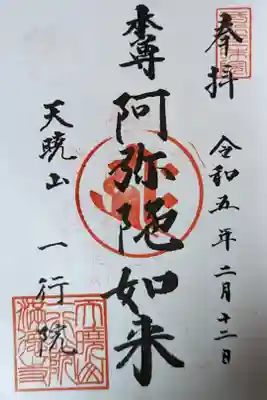 奉拝
令和五年二月十二日
本尊
阿弥陀如来
天暁山
一行院